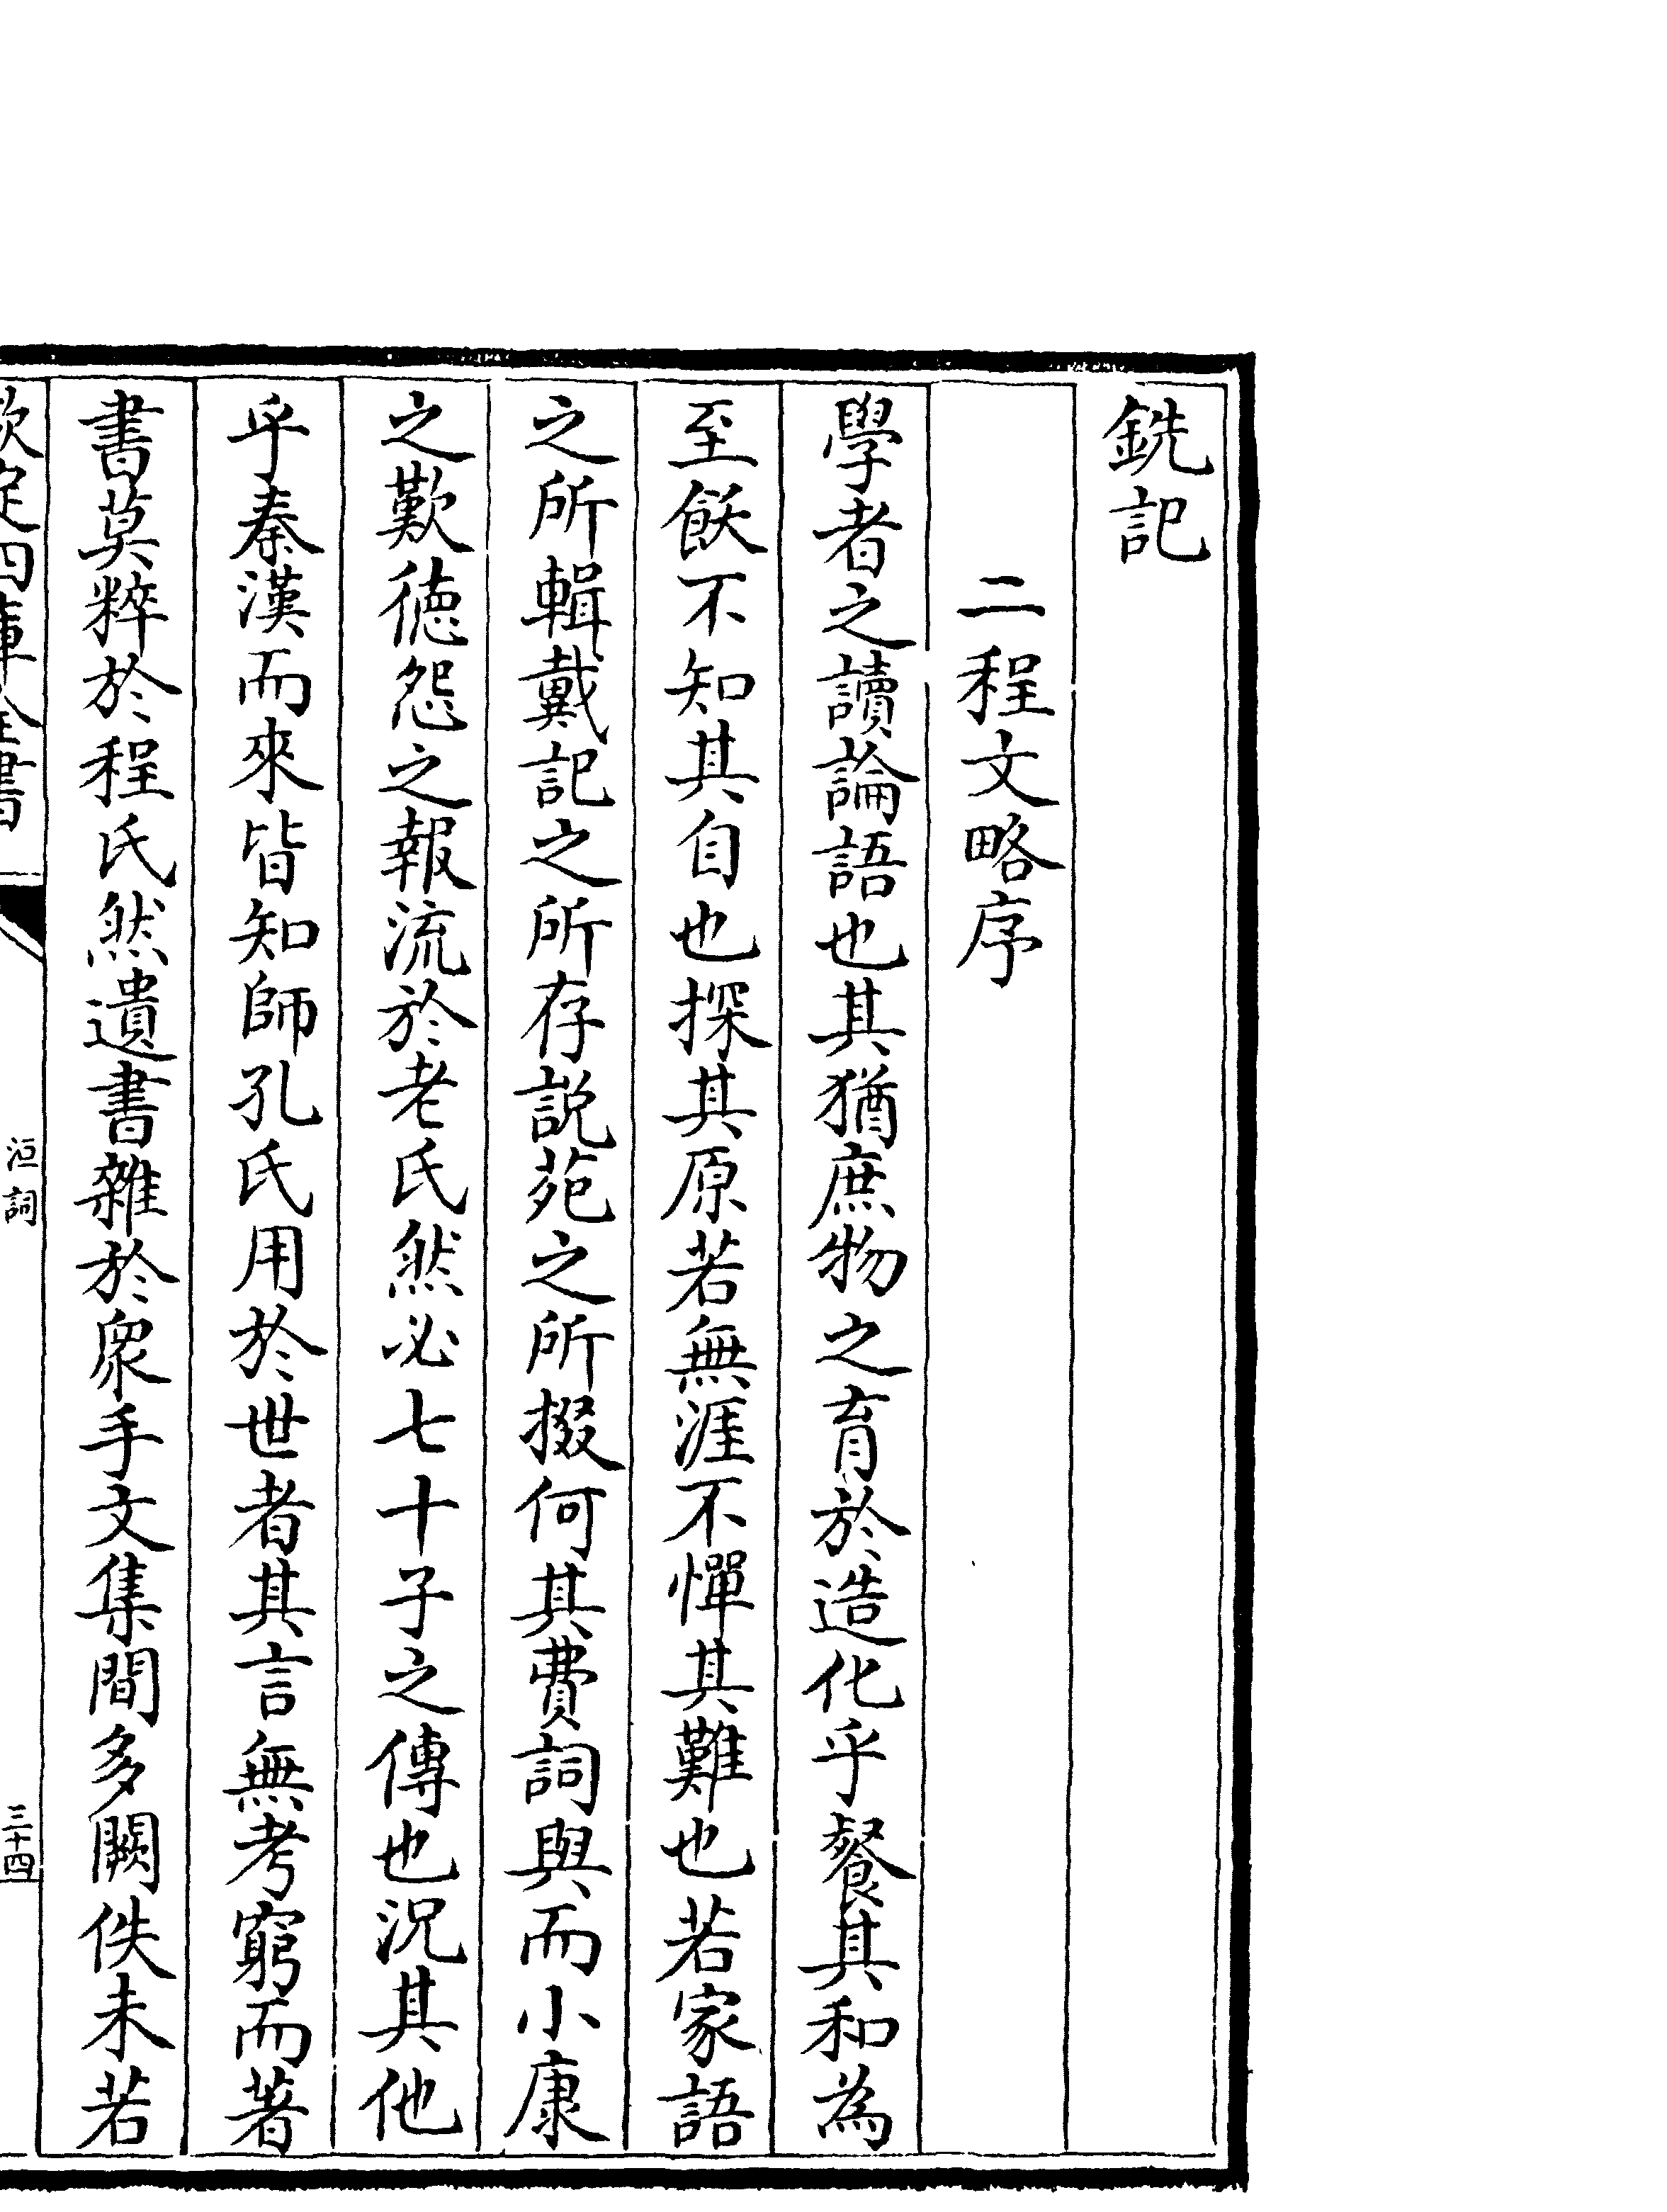 銑記
二程文略序
學者之讀論語也其猶庶物之育於造化乎餐其和為
至飫不知其自也探其原若無涯不憚其難也若家語
之所輯戴記之所存説苑之所掇何其費詞與而小康
之歎徳怨之報流於老氏然必七十子之傳也況其他
乎秦漢而來皆知師孔氏用於世者其言無考窮而著
書莫粹於程氏然遺書雜於衆手文集間多闕佚未若
欽定四庫全書
洹詞
三十四